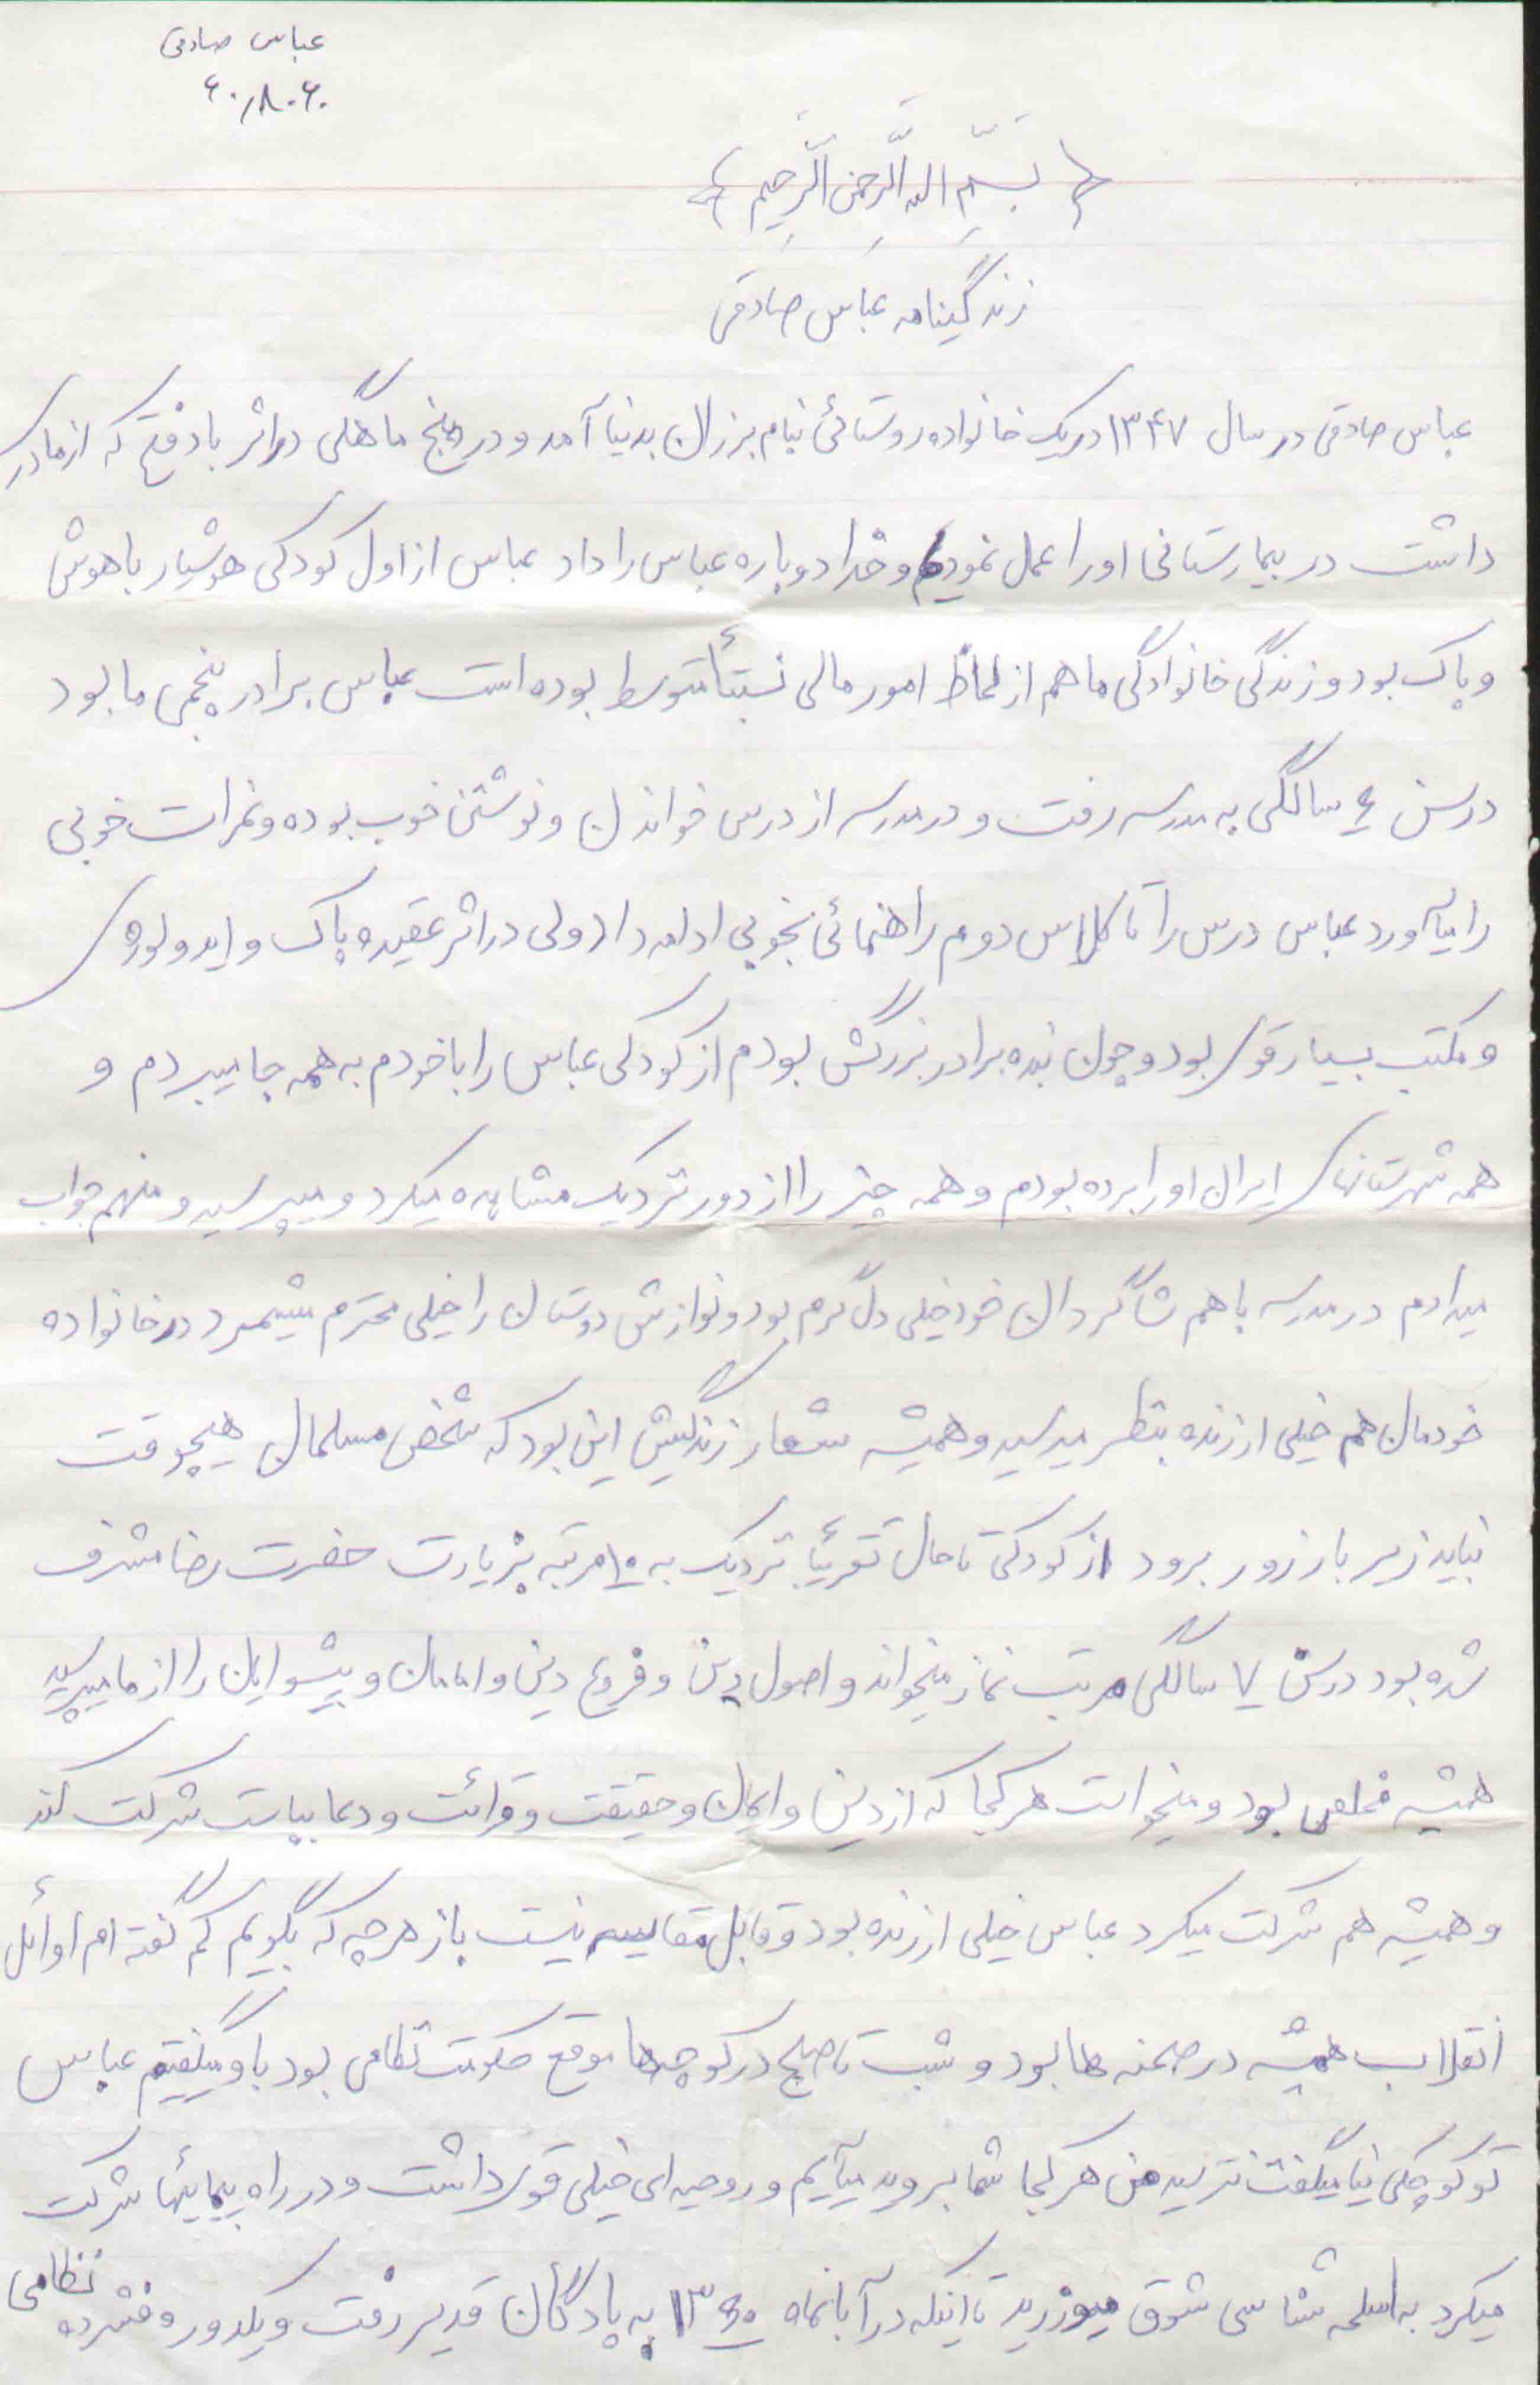 عباس صادقی
﴿ بِسْمِ اللهِ الرَّحمنِ الرَّحیمِ ﴾
زندگینامه عباس صادقی
عباس صادقی در سال ۱۳۴۷ در یک خانواده روستائی بنام برزلان بدنیا آمد و در پنج ماهگی در اثر باد فتق که از مادر
داشت در بیمارستانی او را عمل نمودیم و خدا دوباره عباس را داد عباس از اول کودکی هوشیار باهوش
و پاک بود و زندگی خانوادگی ما هم از لحاظ امور مالی نسبتأ متوسط بوده است عباس برادر پنجمی ما بود
در سن ۶ سالگی به مدرسه رفت و در مدرسه از درس خواندن و نوشتن خوب بوده و نمرات خوبی
را میآورد عباس درس را تا کلاس دوم راهنمائی بخوبی ادامه داد ولی در اثر عقیده پاک و ایدولوژی
و مکتب بسیار قوی بود و چون بنده برادر بزرگش بودم از کودکی عباس را با خودم به همه جا میبردم و
همه شهرستانهای ایران او را برده بودم و همه چیز را از دور نزدیک مشاهده میکرد و میپرسید و منهم جواب
میدادم در مدرسه با هم شاگردان خود خیلی دلگرم بود و نوازش دوستان را خیلی محترم میشمرد در خانواده
خودمان هم خیلی ارزنده بنظر میرسید و همیشه شعار زندگیش این بود که شخص مسلمان هیچوقت
نباید زیر بار زور برود از کودکی تا حال تقریبأ نزدیک به ۱۰ مرتبه بزیارت حضرت رضا مشرف
شده بود در سن ۷ سالگی مرتب نماز میخواند و اصول دین و فروع دین و امامان و پیشوایان را از ما میپرسید
همیشه مخلص بود و میخواست هر کجا که از دین و ایمان و حقیقت و قرائت و دعا بپاست شرکت کند
و همیشه هم شرکت میکرد عباس خیلی ارزنده بود و قابل مقایسه نیست باز هر چه که بگویم کم گفته ام اوائل
انقلاب همیشه در صحنه ها بود و شب تا صبح در کوچه ها موقع حکومت نظامی بود باو میگفتیم عباس
تو کوچکی نیا میگفت نترسید من هر کجا شما بروید میآیم و روحیه ای خیلی قوی داشت و در راه پیمائیها شرکت
میکرد به اسلحه شناسی شوق میورزید تا اینکه در آبانماه ۱۳۶۰ به پادگان قدیر رفت و یکدوره فشرده نظامی